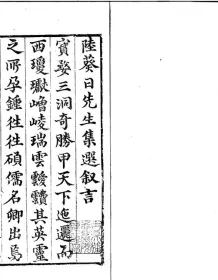 陸葵日先生集選叙言
寳婺三洞奇勝甲天下迤邐而
西瓊巘嶒崚瑞雲靉靆其英靈
之所孕鍾往往碩儒名卿出焉